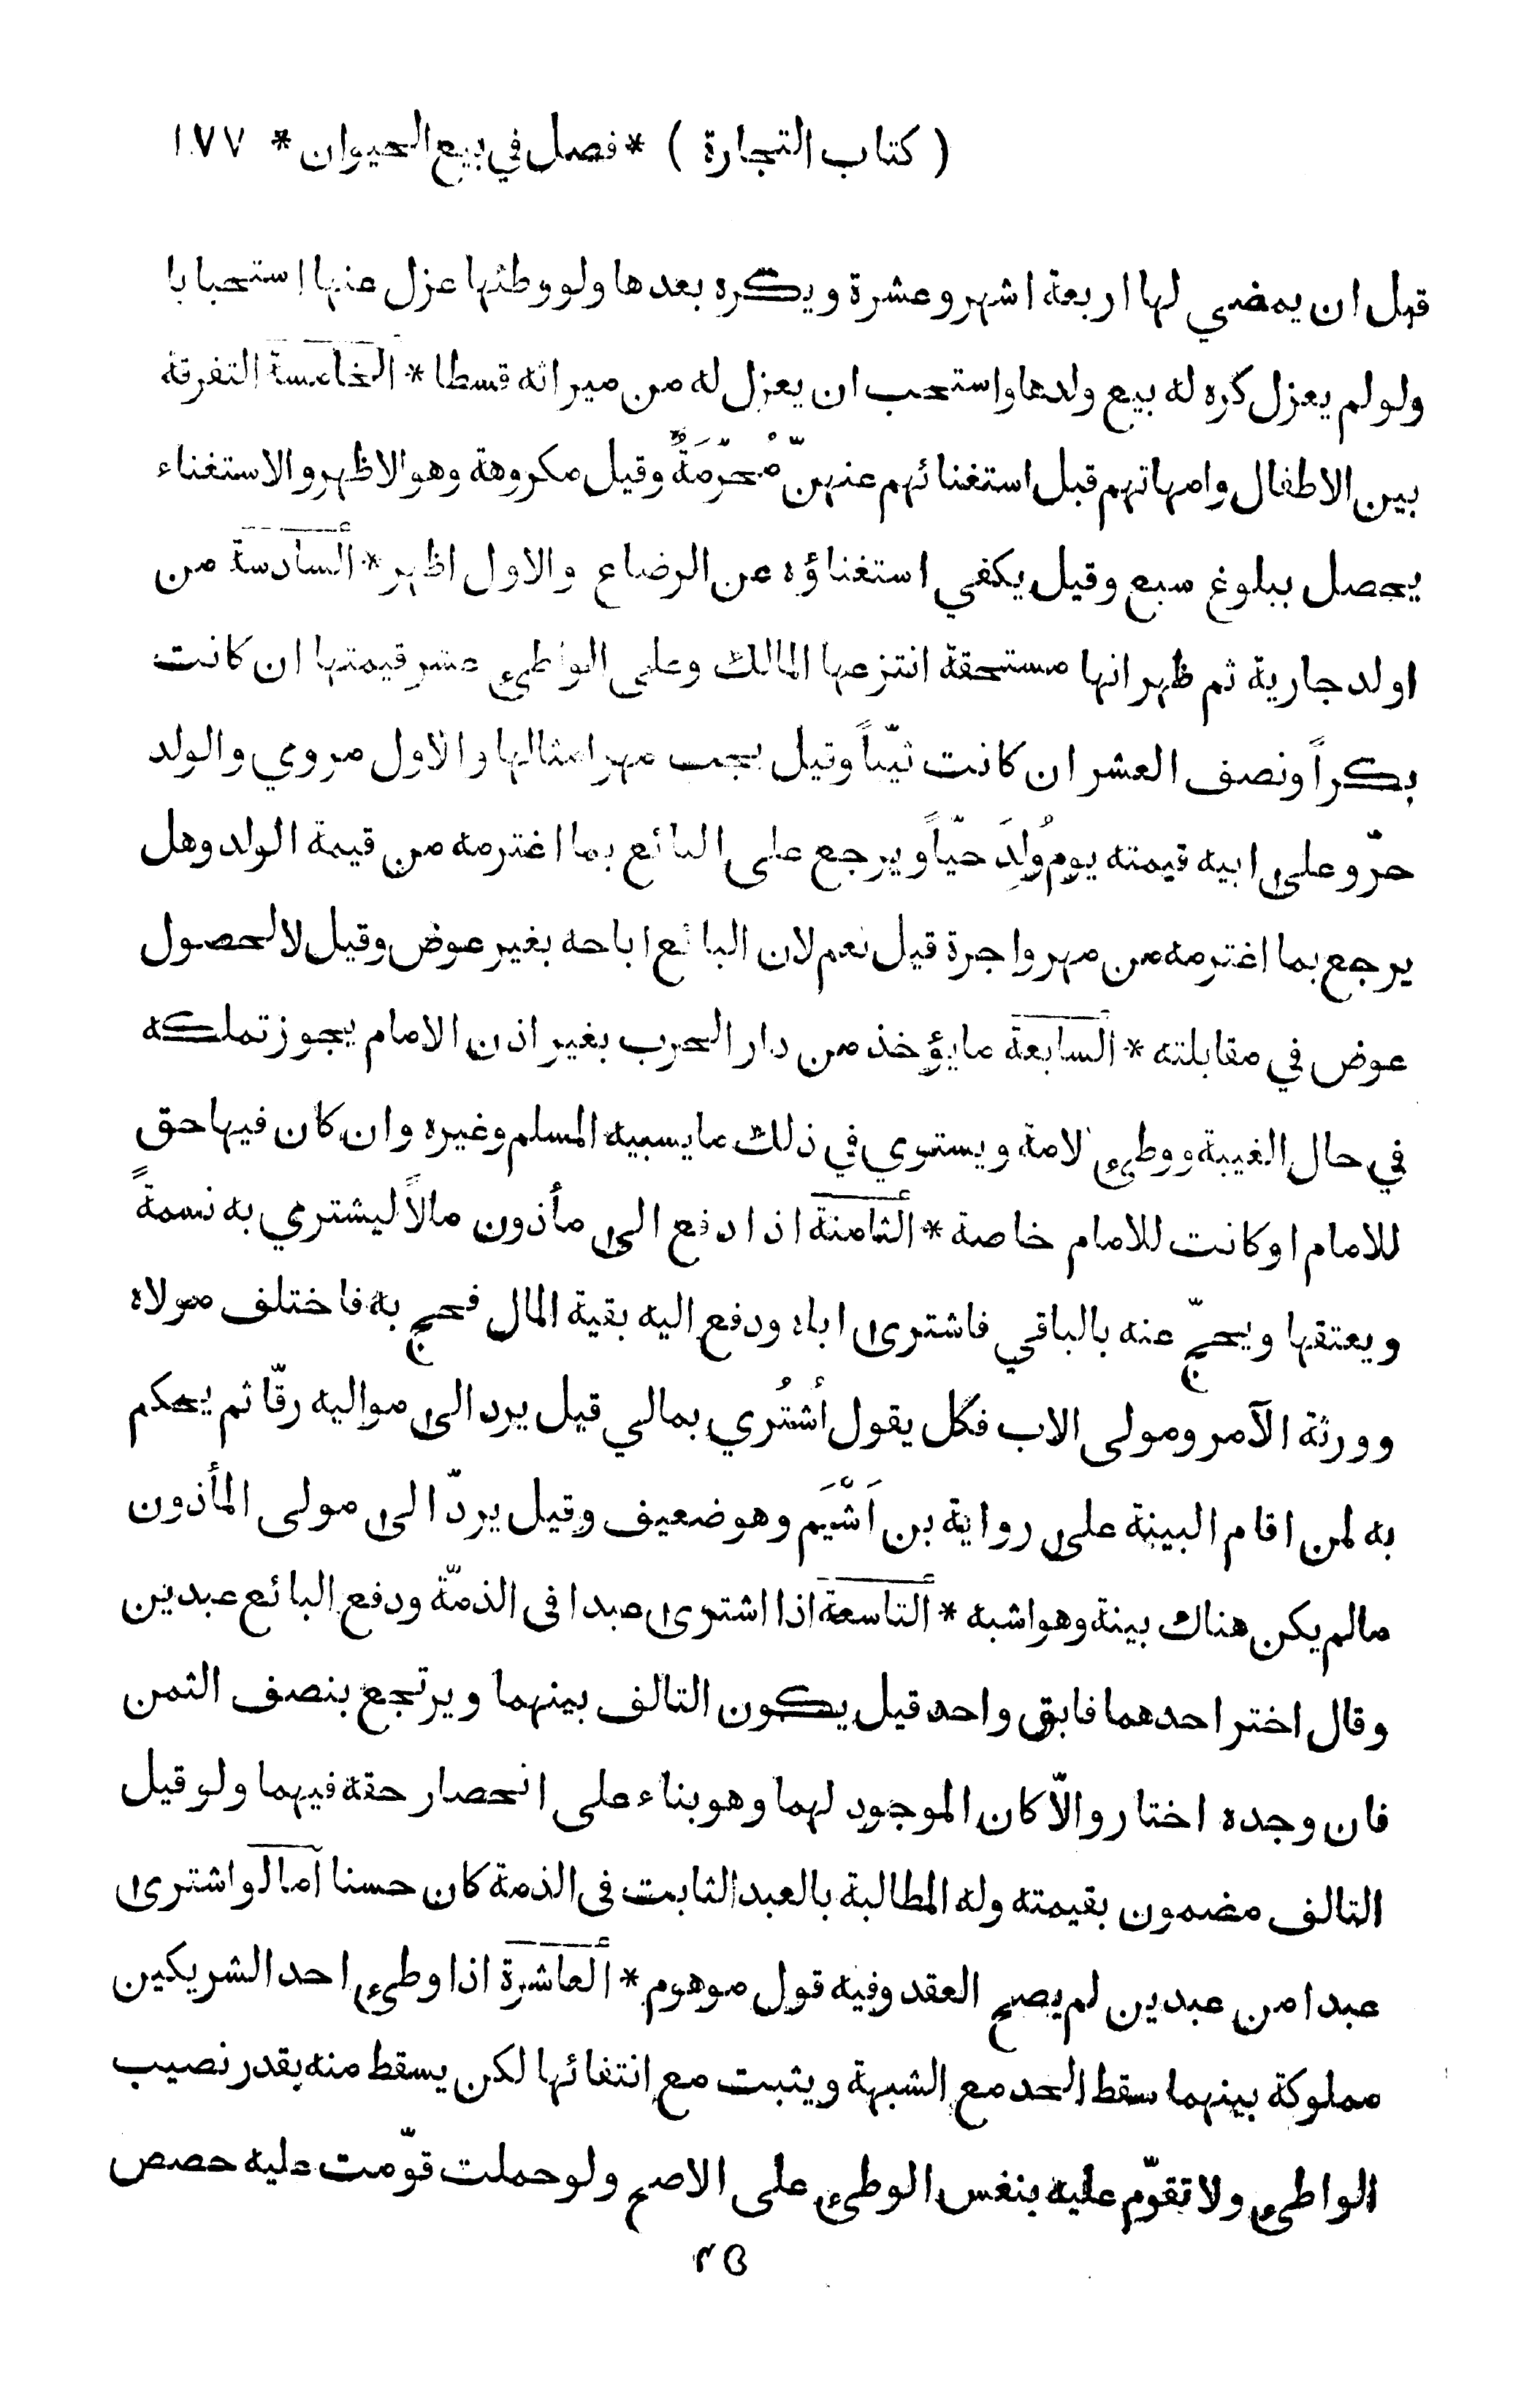 ( كتاب التجارة ) * فصل في بيع الحيوان * ١٧٧
قبل ان يمضي لها اربعة اشهر وعشرة ويكره بعدها ولو وطئها عزل عنها استحبابا
ولو لم يعزل كره له بيع ولدها واستحب ان يعزل له من ميراثه قسطا * الخامسة التفرقة
بين الاطفال وامهاتهم قبل استغنائهم عنهنّ مُحرّمَةٌ وقيل مكروهة وهو الاظهر والاستغناء
يحصل ببلوغ سبع وقيل يكفي استغناؤه عن الرضاع والاول اظهر * ألسادسة من
اولد جارية ثم ظهر انها مستحقة انتزعها المالك وعلى الواطىء عشر قيمتها ان كانت
بكراً ونصف العشر ان كانت ثيّباً وقيل يجب مهر امثالها والاول مروي والولد
حرّ وعلى ابيه قيمته يوم وُلِدَ حيّاً ويرجع على البائع بما اغترمه من قيمة الولد وهل
يرجع بما اغترمه من مهر واجرة قيل نعم لان البائع اباحه بغير عوض وقيل لا لحصول
عوض في مقابلته * ألسابعة ما يؤخذ من دار الحرب بغير اذن الامام يجوز تملكه
في حال الغيبة ووطىء الامة ويستوي في ذلك ما يسبيه المسلم وغيره وان كان فيها حق
للامام او كانت للامام خاصة * ألثامنة اذا دفع الى مأذون مالاً ليشتري به نسمةً
ويعتقها ويحجّ عنه بالباقي فاشترى اباه ودفع اليه بقية المال فحج به فاختلف مولاه
وورثة الآمر ومولى الاب فكل يقول أشتُري بمالي قيل يرد الى مواليه رقّا ثم يحكم
به لمن اقام البينة على رواية بن اَشْيَم وهو ضعيف وقيل يردّ الى مولى المأذون
مالم يكن هناك بينة وهو اشبه * ألتاسعة اذا اشترى عبدا فى الذمّة ودفع البائع عبدين
وقال اختر احدهما فابق واحد قيل يكون التالف بينهما ويرتجع بنصف الثمن
فان وجده اختار والاّ كان الموجود لهما وهو بناء على انحصار حقه فيهما ولو قيل
التالف مضمون بقيمته وله المطالبة بالعبد الثابت فى الذمة كان حسنا أما لو اشترى
عبدا من عبدين لم يصح العقد وفيه قول موهوم * ألعاشرة اذا وطىء احد الشريكين
مملوكة بينهما سقط الحد مع الشبهة ويثبت مع انتفائها لكن يسقط منه بقدر نصيب
الواطىء ولا تقوّم عليه بنفس الوطىء على الاصح ولو حملت قوّمت عليه حصص